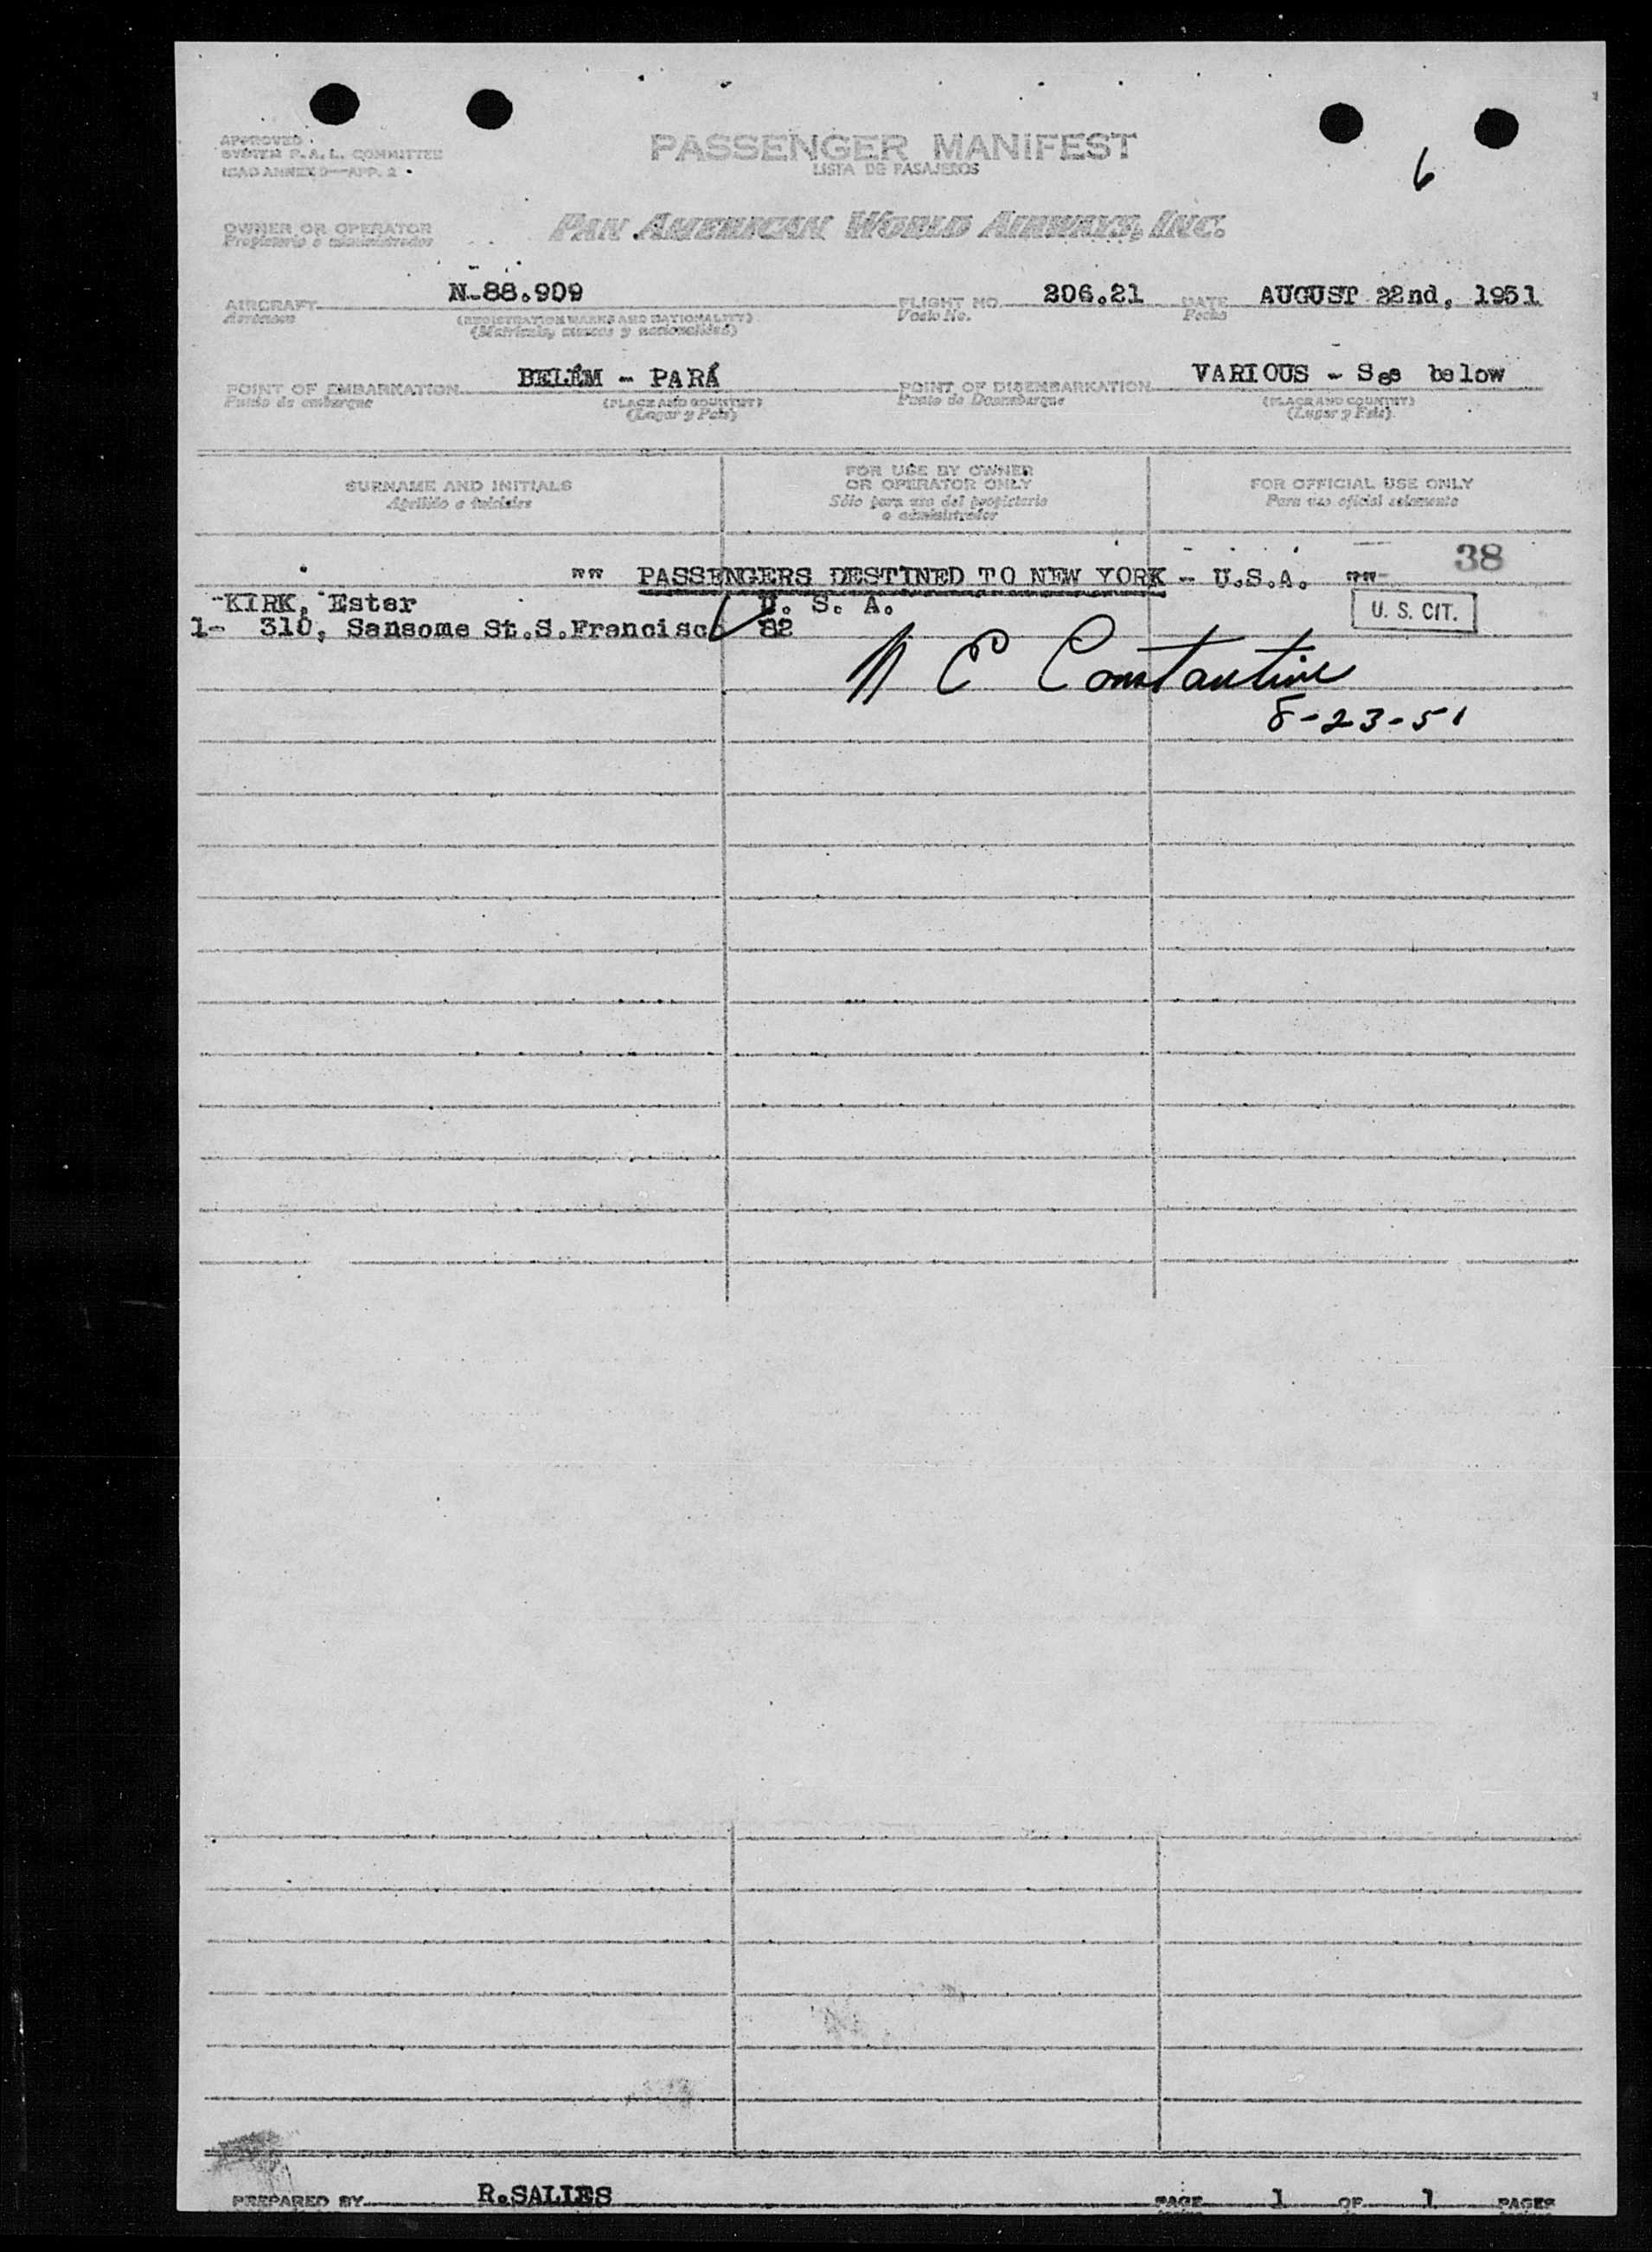 APPROVED
SYSTEM P.A.L. COMMITTEE
ICAO ANNEX 9—APP. 2
PASSENGER MANIFEST
LISTA DE PASAJEROS
6
OWNER OR OPERATOR
Propietario o administrador
PAN AMERICAN WORLD AIRWAYS, INC.
AIRCRAFT N-88.909 FLIGHT NO. 206.21 DATE AUGUST 22nd, 1951
Aeronave (REGISTRATION MARKS AND NATIONALITY) Vuelo No. Fecha
(Matrícula, marcas y nacionalidad)
POINT OF EMBARKATION BELÉM - PARÁ POINT OF DISEMBARKATION VARIOUS - See below
Punto de embarque (PLACE AND COUNTRY) Punto de Desembarque (PLACE AND COUNTRY)
(Lugar y País) (Lugar y País)
SURNAME AND INITIALS
Apellido e iniciales
FOR USE BY OWNER
OR OPERATOR ONLY
Sólo para uso del propietario
o administrador
FOR OFFICIAL USE ONLY
Para uso oficial solamente
38
"" PASSENGERS DESTINED TO NEW YORK - U.S.A. ""
KIRK, Ester U. S. A. U. S. CIT.
1- 310, Sansome St.S.Francisco 82
N E Constantine
8-23-51
PREPARED BY R.SALIES PAGE 1 OF 1 PAGES